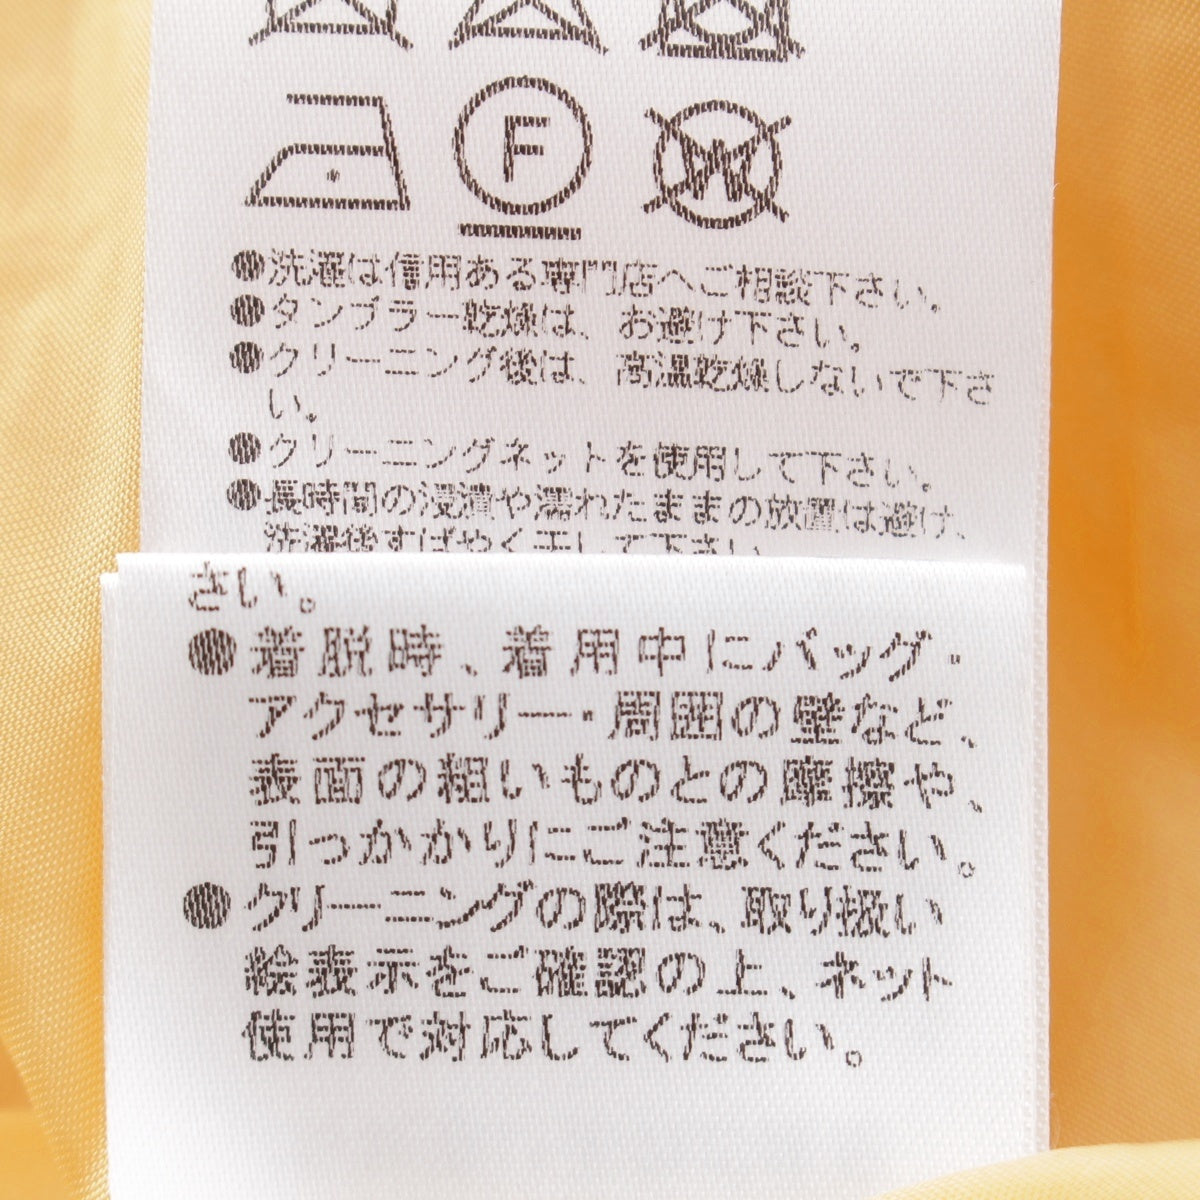 F
W
●洗濯は信用ある専門店へご相談下さい。
●タンブラー乾燥は、お避け下さい。
●クリーニング後は、高温乾燥しないで下さ
い。
●クリーニングネットを使用して下さい。
●長時間の浸漬や濡れたままの放置は避け、
洗濯後すばやく干して下さい。
さい。
●着脱時、着用中にバッグ・
アクセサリー・周囲の壁など、
表面の粗いものとの摩擦や、
引っかかりにご注意ください。
●クリーニングの際は、取り扱い
絵表示をご確認の上、ネット
使用で対応してください。